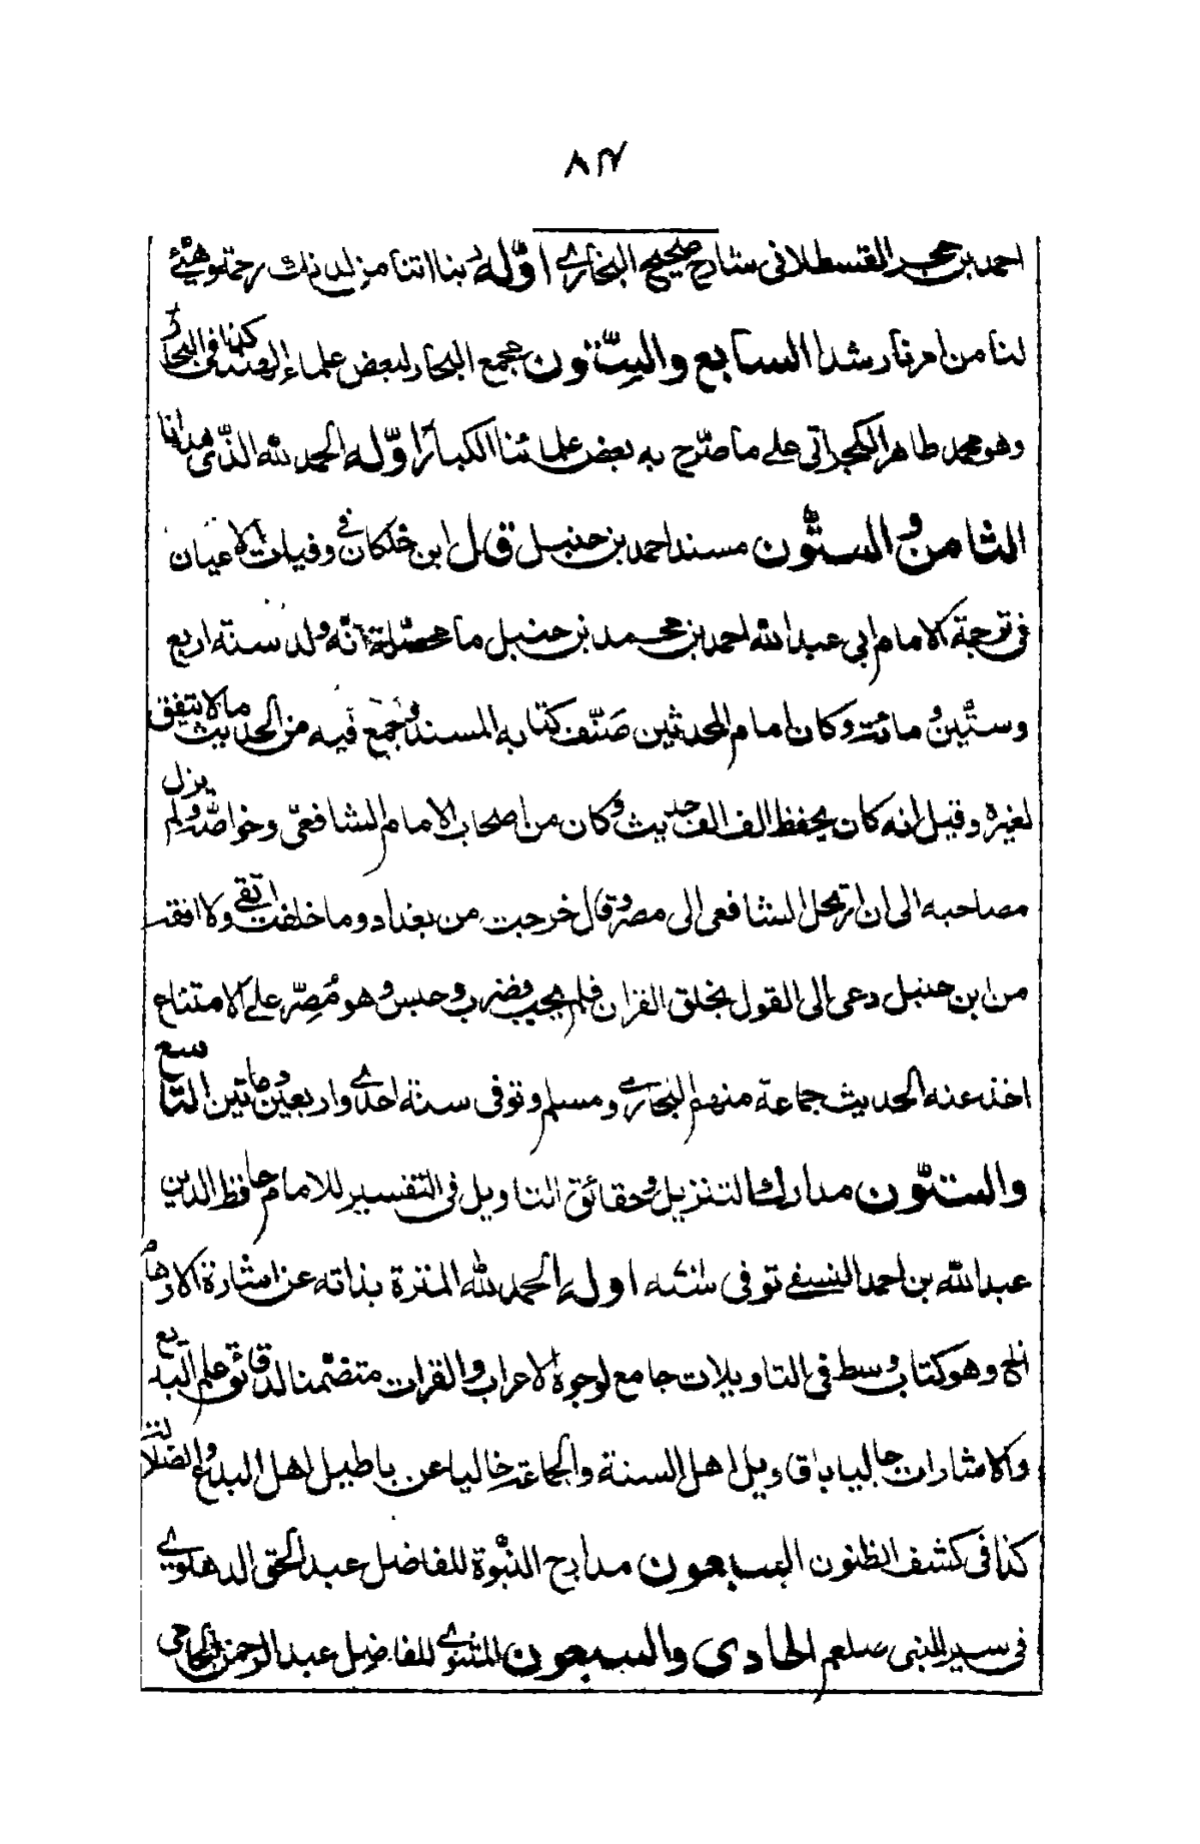 احمد بن حجر القسطلانى شارح صحيح البخارى اوّله ربنا اتنا من لدنك رحمة وهيئ
لنا من امرنا رشدا السابع والستّون مجمع البحار لبعض علماء الهند كذا فى البحار
وهو محمد طاهر الكجراتى على ما صرّح به بعض علمائنا الكبار اوّله الحمد لله الذى هدانا
الثامن والستّون مسند احمد بن حنبل قال ابن خلكان فى وفيات الاعيان
فى ترجمة الامام ابى عبد الله احمد بن محمد بن حنبل ما محصّله انّه ولد سنة اربع
وستّين ومائة وكان امام المحدثين صَنّف كتابه المسند وجمع فيه من الحديث ما لا يتفق
لغيره وقيل انه كان يحفظ الف الف حديث وكان من اصحاب الامام الشافعى وخواصّه ولم يزل
مصاحبه الى ان ارتحل الشافعى الى مصر وقال خرجت من بغداد وما خلفت اتقى ولا افقه
من ابن حنبل دعى الى القول بخلق القران فلم يجب فضرب وحبس وهو مُصِرّ على الامتناع
اخذ عنه الحديث جماعة منهم البخارى ومسلم وتوفى سنة احدى واربعين ومأتين التاسع
والستّون مدارك التنزيل وحقائق التاويل فى التفسير للامام حافظ الدين
عبد الله بن احمد النسفى توفى سنة اوله الحمد لله المنزه بذاته عن اشارة الاوهام
الخ وهو كتاب وسط فى التاويلات جامع لوجوه الاعراب والقرات متضمنا لدقائق علم البديع
والاشارات حاليا باقاويل اهل السنة والجماعة خاليا عن باطيل اهل البدع والضلالة
كذا فى كشف الظنون السبعون مدارج النبوة للفاضل عبد الحق الدهلوى
فى سير النبى صلعم الحادى والسبعون المثنوى للفاضل عبد الرحمن الجامى